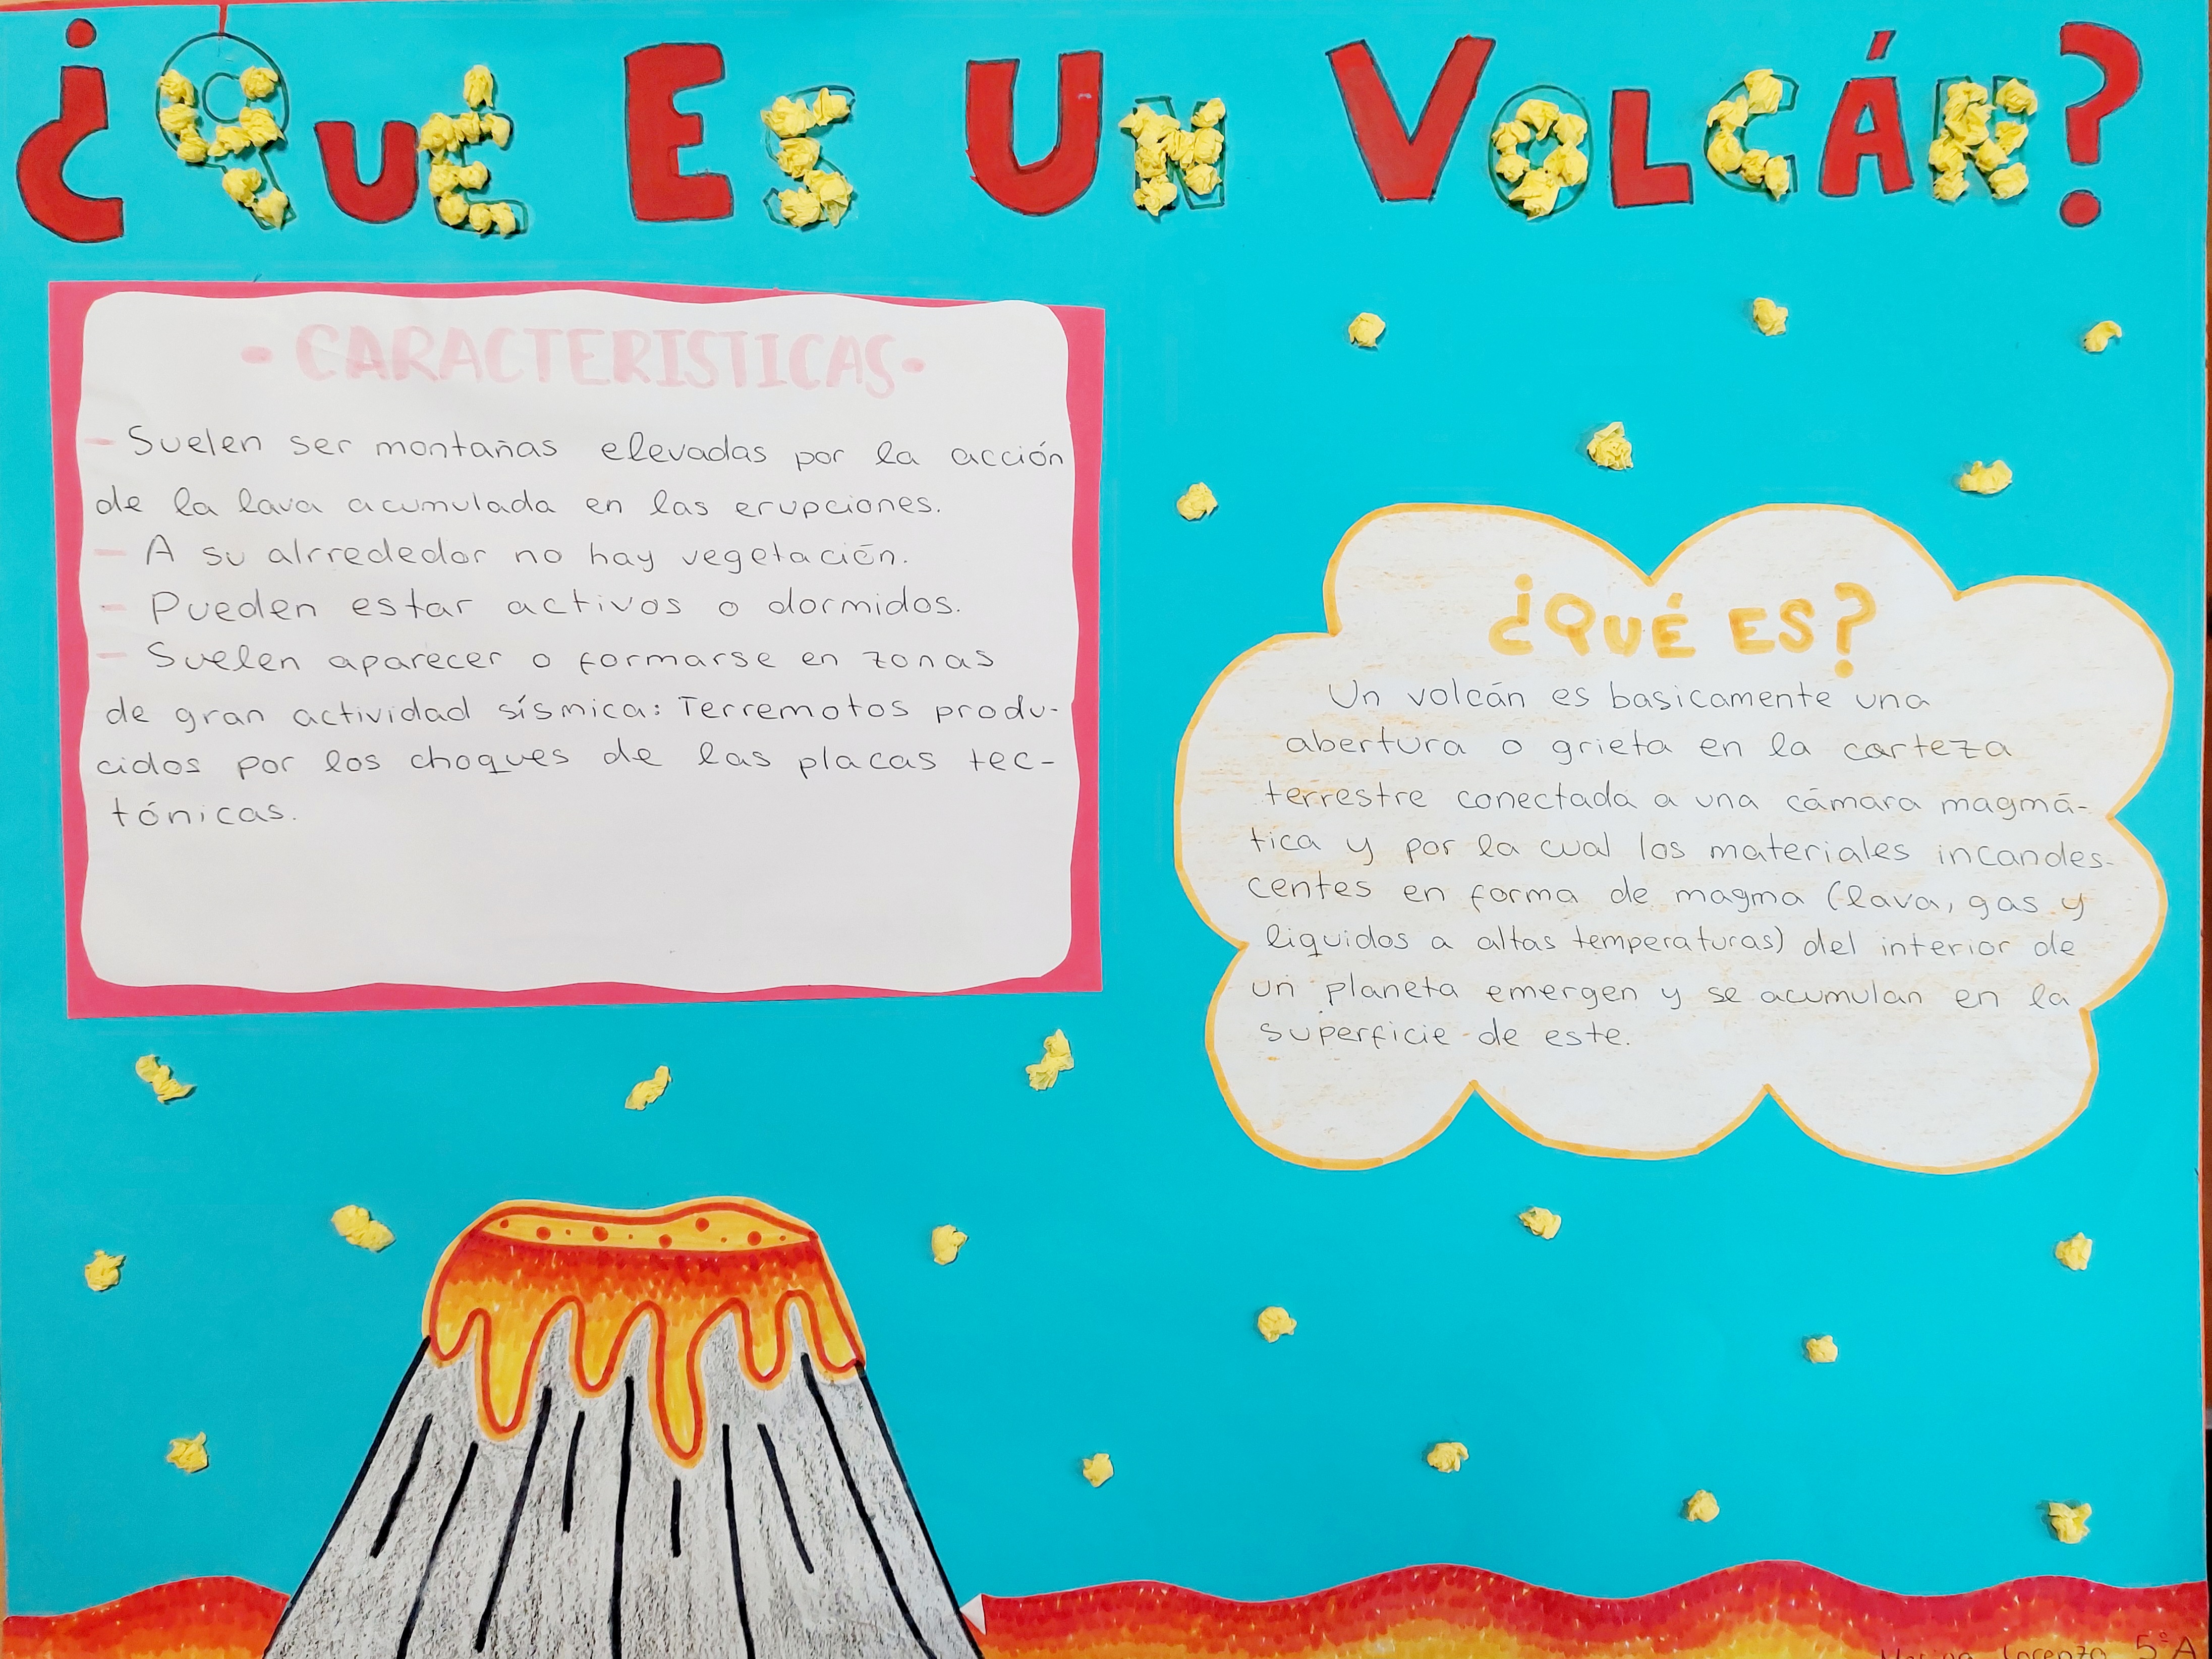 ¿QUÉ ES UN VOLCÁN?
• CARACTERISTICAS •
- Suelen ser montañas elevadas por la acción
de la lava acumulada en las erupciones.
- A su alrrededor no hay vegetación.
- Pueden estar activos o dormidos.
- Suelen aparecer o formarse en zonas
de gran actividad sísmica: Terremotos produ-
cidos por los choques de las placas tec-
tónicas.
¿QUÉ ES?
Un volcán es basicamente una
abertura o grieta en la carteza
terrestre conectada a una cámara magmá-
tica y por la cual los materiales incandes-
centes en forma de magma (lava, gas y
liquidos a altas temperaturas) del interior de
un planeta emergen y se acumulan en la
superficie de este.
Lorenzo 5ºA